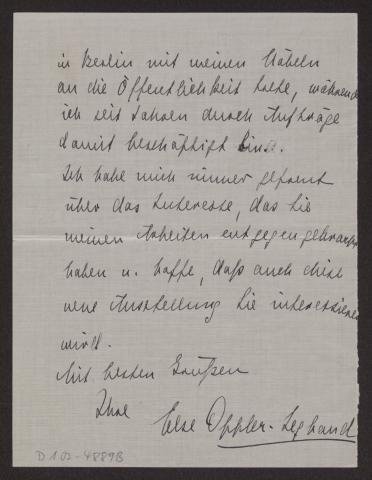 in Berlin mit meinen Möbeln
an die Öffentlichkeit trete, während
ich seit Jahren durch Aufträge
damit beschäftigt bin.
Ich habe mich immer gefreut
über das Interesse, das Sie
meinen Arbeiten entgegengebracht
haben u. hoffe, daß auch diese
neue Ausstellung Sie interessieren
wird.
Mit besten Grüßen
Ihre
Else Oppler-Legband
D 102-4889B